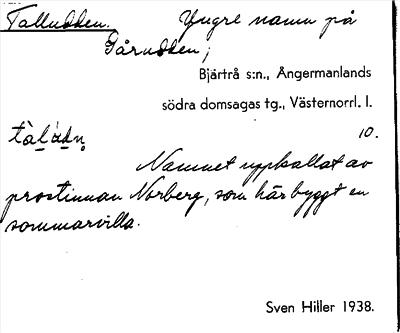 Talludden. Yngre namn på
Gårudden;
Bjärtrå s:n., Ångermanlands
södra domsagas tg., Västernorrl. l.
10.
Namnet uppkallat av
prostinnan Norberg, som här byggt en
sommarvilla.
Sven Hiller 1938.